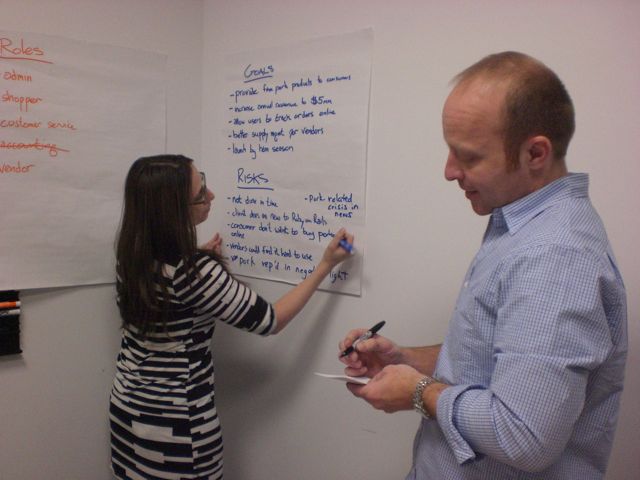 Roles
- admin
shopper
customer service
accounting
vendor
GOALS
- provide farm pork products to consumers
- increase annual revenue to $5mm
- allow users to track orders online
- better supply mgmt for vendors
- launch by ham season
RISKS
- not done in time
- client devs on new to Ruby on Rails
- consumer don't want to buy pork
online
- vendors could find it hard to use
- pork rep'd in negative light
- pork related
crisis in
news